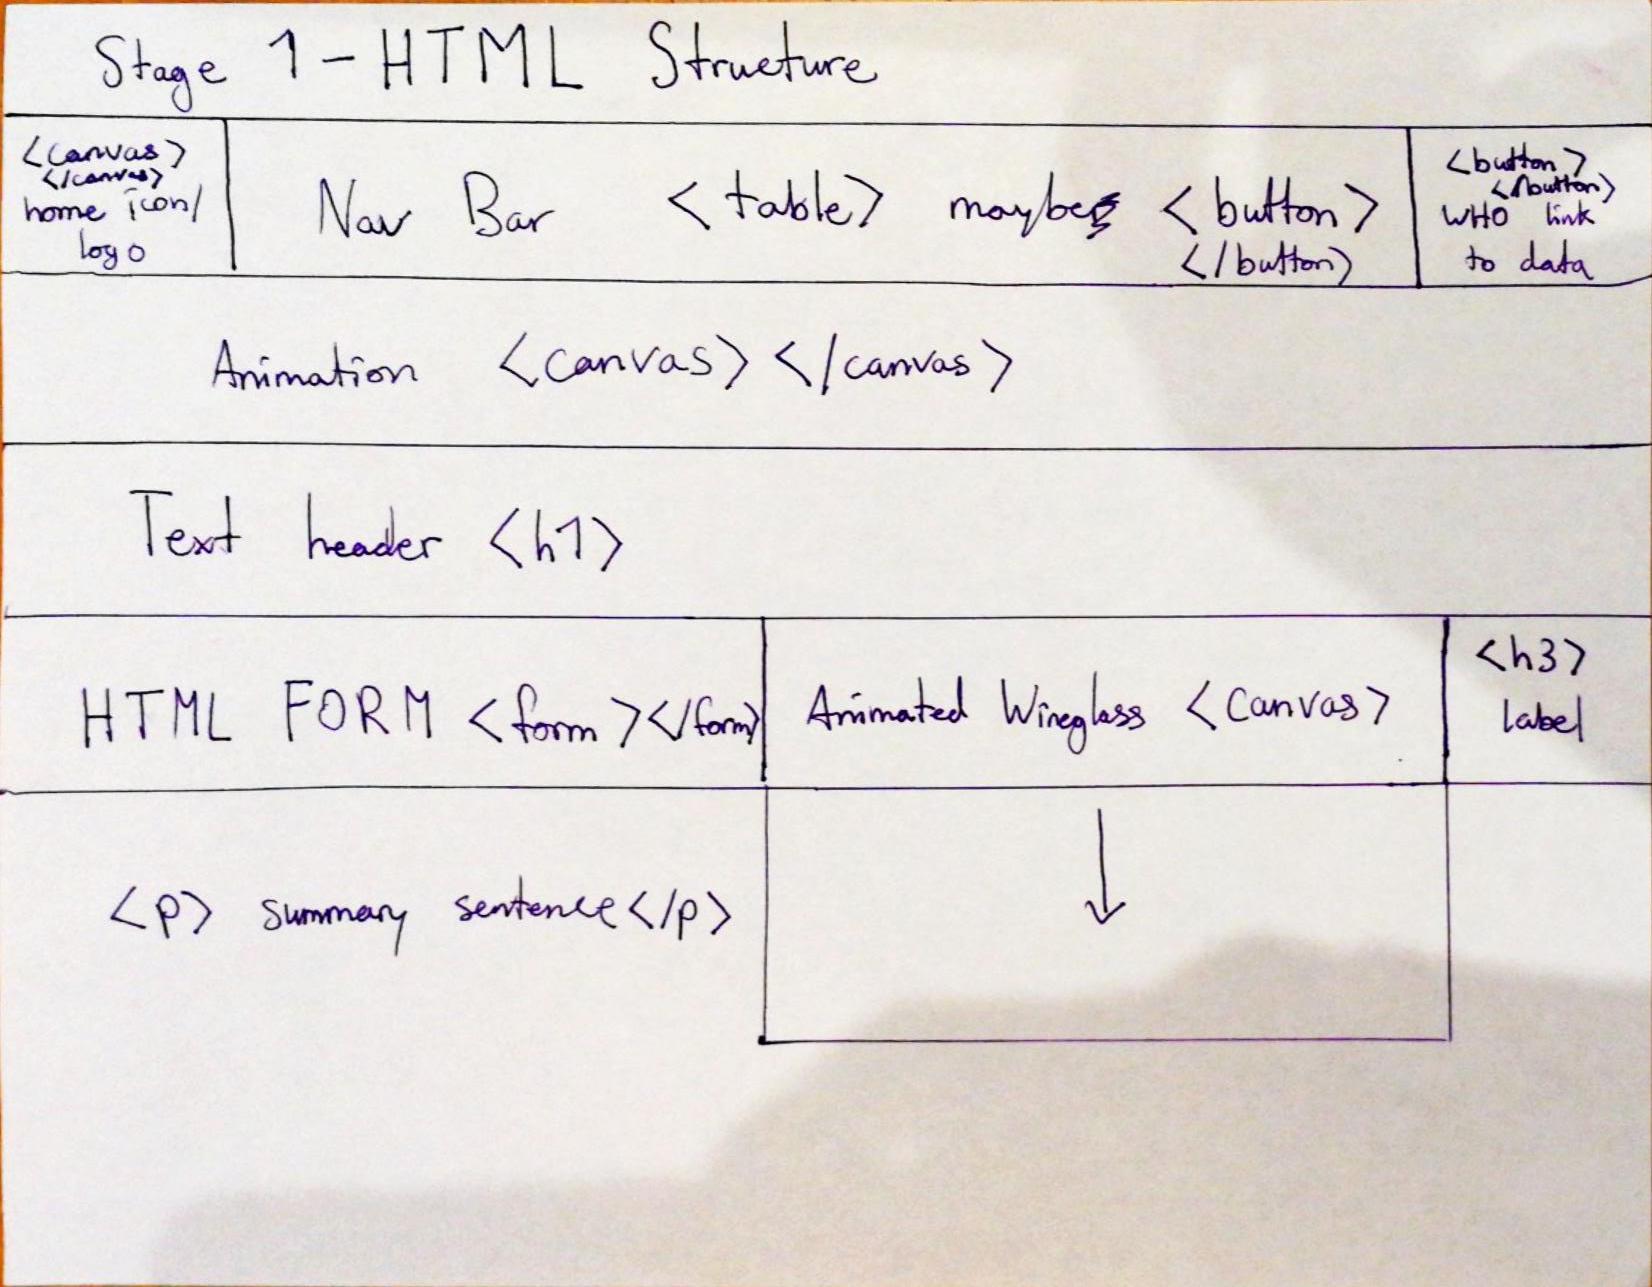 Stage 1 - HTML Structure
<canvas>
</canvas>
home icon/
logo
Nav Bar <table> maybe <button>
</button>
<button>
</button>
WHO link
to data
Animation <canvas></canvas>
Text header <h1>
HTML FORM <form></form>
Animated Wineglass <canvas>
<h3>
label
<p> summary sentence</p>